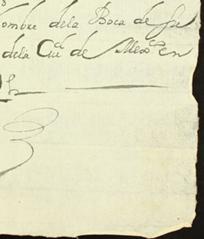 ombre dela Boca de su
dela Ciud de Mexco en